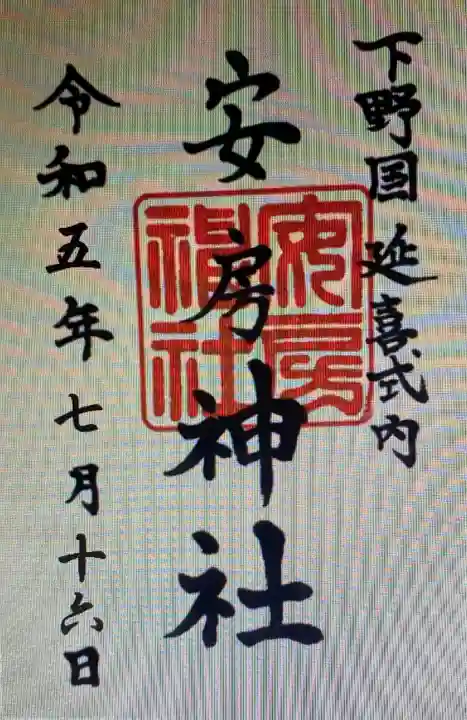 下野国 延喜式内
安房神社
安房神社
令和五年七月十六日